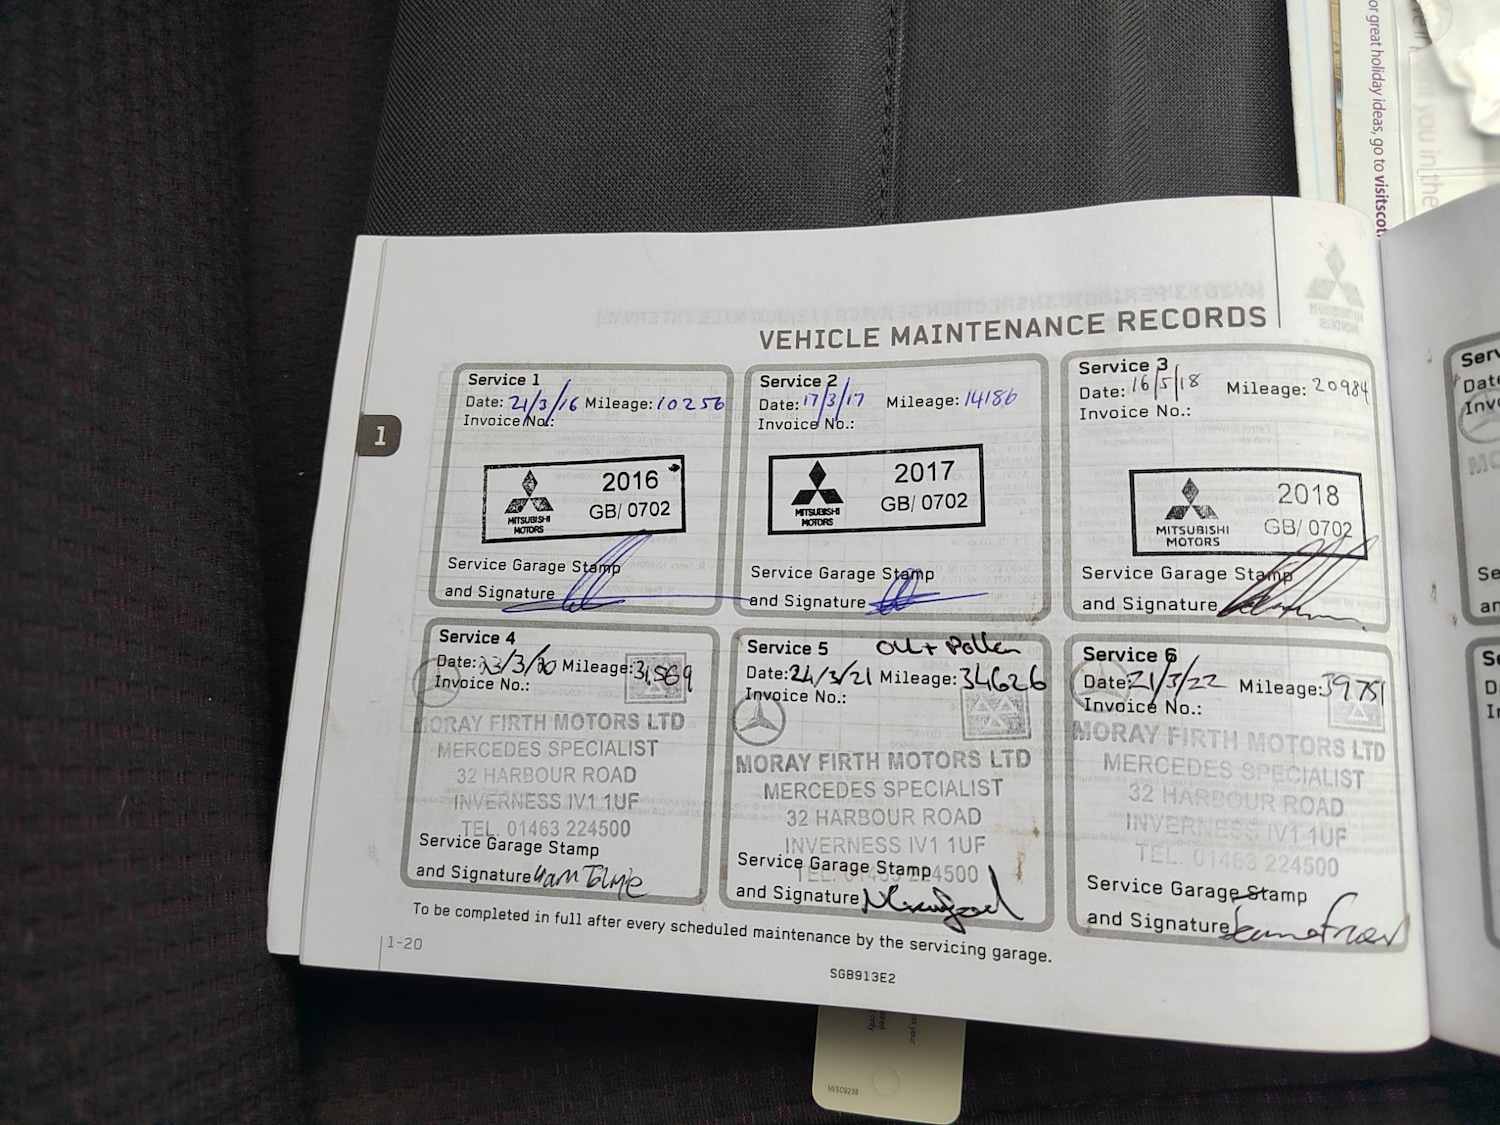 or great holiday ideas, go to visitscot
you in the
VEHICLE MAINTENANCE RECORDS
1
Service 1
Date: 21/3/16 Mileage: 10256
Invoice No.:
MITSUBISHI
MOTORS
2016
GB/ 0702
Service Garage Stamp
and Signature
Service 2
Date: 17/3/17 Mileage: 14186
Invoice No.:
MITSUBISHI
MOTORS
2017
GB/ 0702
Service Garage Stamp
and Signature
Service 3
Date: 16/5/18 Mileage: 20984
Invoice No.:
MITSUBISHI
MOTORS
2018
GB/ 0702
Service Garage Stamp
and Signature
Service 4
Date: 23/3/20 Mileage: 31,569
Invoice No.:
MORAY FIRTH MOTORS LTD
MERCEDES SPECIALIST
32 HARBOUR ROAD
INVERNESS IV1 1UF
TEL. 01463 224500
Service Garage Stamp
and Signature
Service 5 Oil + Pollen
Date: 24/3/21 Mileage: 34626
Invoice No.:
MORAY FIRTH MOTORS LTD
MERCEDES SPECIALIST
32 HARBOUR ROAD
INVERNESS IV1 1UF
TEL. 01463 224500
Service Garage Stamp
and Signature
Service 6
Date: 21/3/22 Mileage: 39751
Invoice No.:
MORAY FIRTH MOTORS LTD
MERCEDES SPECIALIST
32 HARBOUR ROAD
INVERNESS IV1 1UF
TEL. 01463 224500
Service Garage Stamp
and Signature
To be completed in full after every scheduled maintenance by the servicing garage.
1-20
SGB913E2
MISC0230